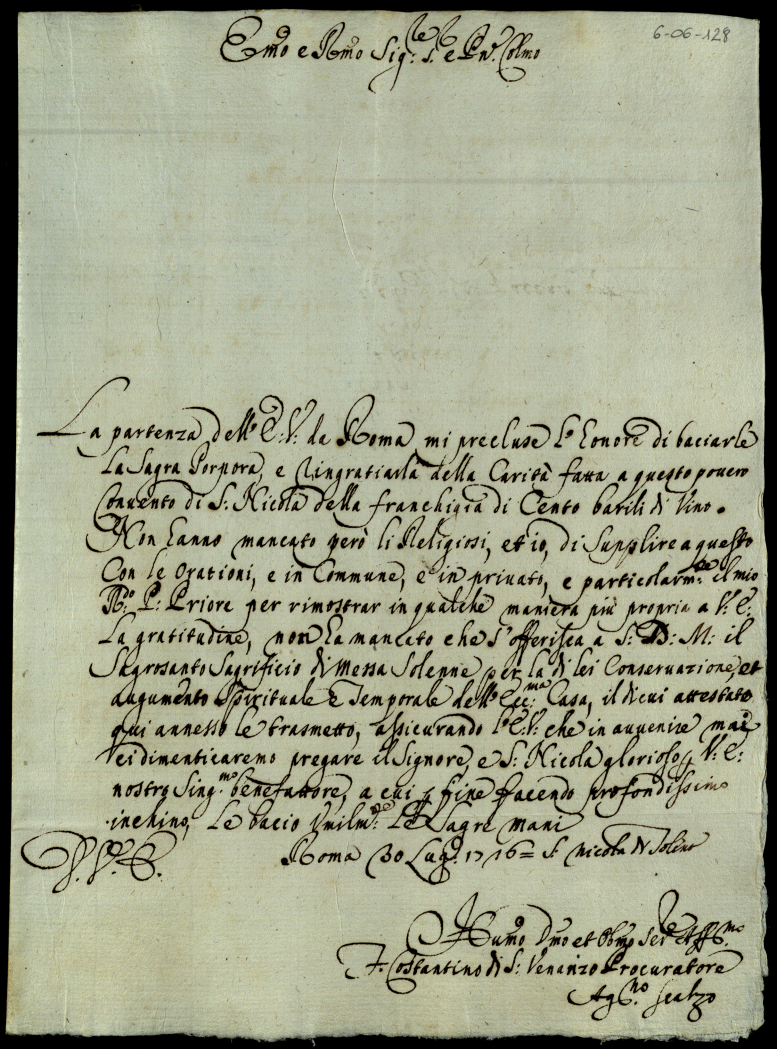 6-06-128
Emo e Rmo Sig.re S. e Pn. Colmo
La partenza dell'E: V: da Roma mi precluse l'honore di baciarle
la Sagra Porpora, e ringratiarla della Carità fatta a questo povero
Convento di S: Nicola della franchigia di Cento barili di Vino.
Non hanno mancato però li Religiosi, et io, di Supplire a questo
Con le orationi, e in Commune, e in privato, e particolarm.te il mio
R.o P: Priore per rimostrar in qualche maniera più propria a V: E:
la gratitudine, non ha mancato che s'offerisca a S: D: M: il
Sagrosanto Sagrificio di Messa Solenne per la di lei Conservazione, et
augumento Spirituale e Temporale dell'Ecc.ma Casa, il di cui attestato
qui annesso le trasmetto, assicurando l'E: V: che in auvenire mai
ci dimenticaremo pregare il Signore, e S: Nicola glorioso V: E:
nostro Sing.mo benefattore, a cui fine facendo profondissimo
inchino, le bacio Umilm.te le Sagre mani
Roma 30 Lug. 1716 = S. Nicola di Tolentino
Humo Dmo et Obmo Ser.re
F. Costantino di S: Venanzo Procuratore
Ag.no Scalzo